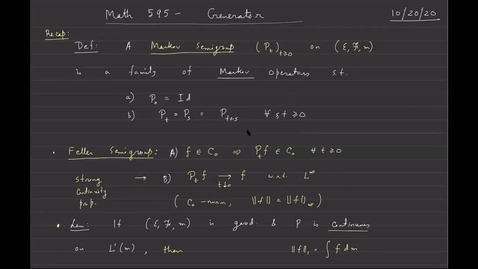 Math 595 - Generator
10/20/20
Recap:
Def: A Markov Semigroup (P_t)_{t≥0} on (E, F, m)
is a family of Markov operators s.t.
a) P_0 = Id
b) P_t ∘ P_s = P_{t+s} ∀ s,t ≥ 0
• Feller Semigroup: A) f ∈ C_0 ⇒ P_t f ∈ C_0 ∀ t ≥ 0
strong continuity prop. → B) P_t f → f w.r.t. L^∞
t↓0
(C_0-norm, ||f|| = ||f||_∞)
• Lem: If (E, F, m) is good & P is continuous
on L^1(m), then ||f||_1 = ∫ f dm